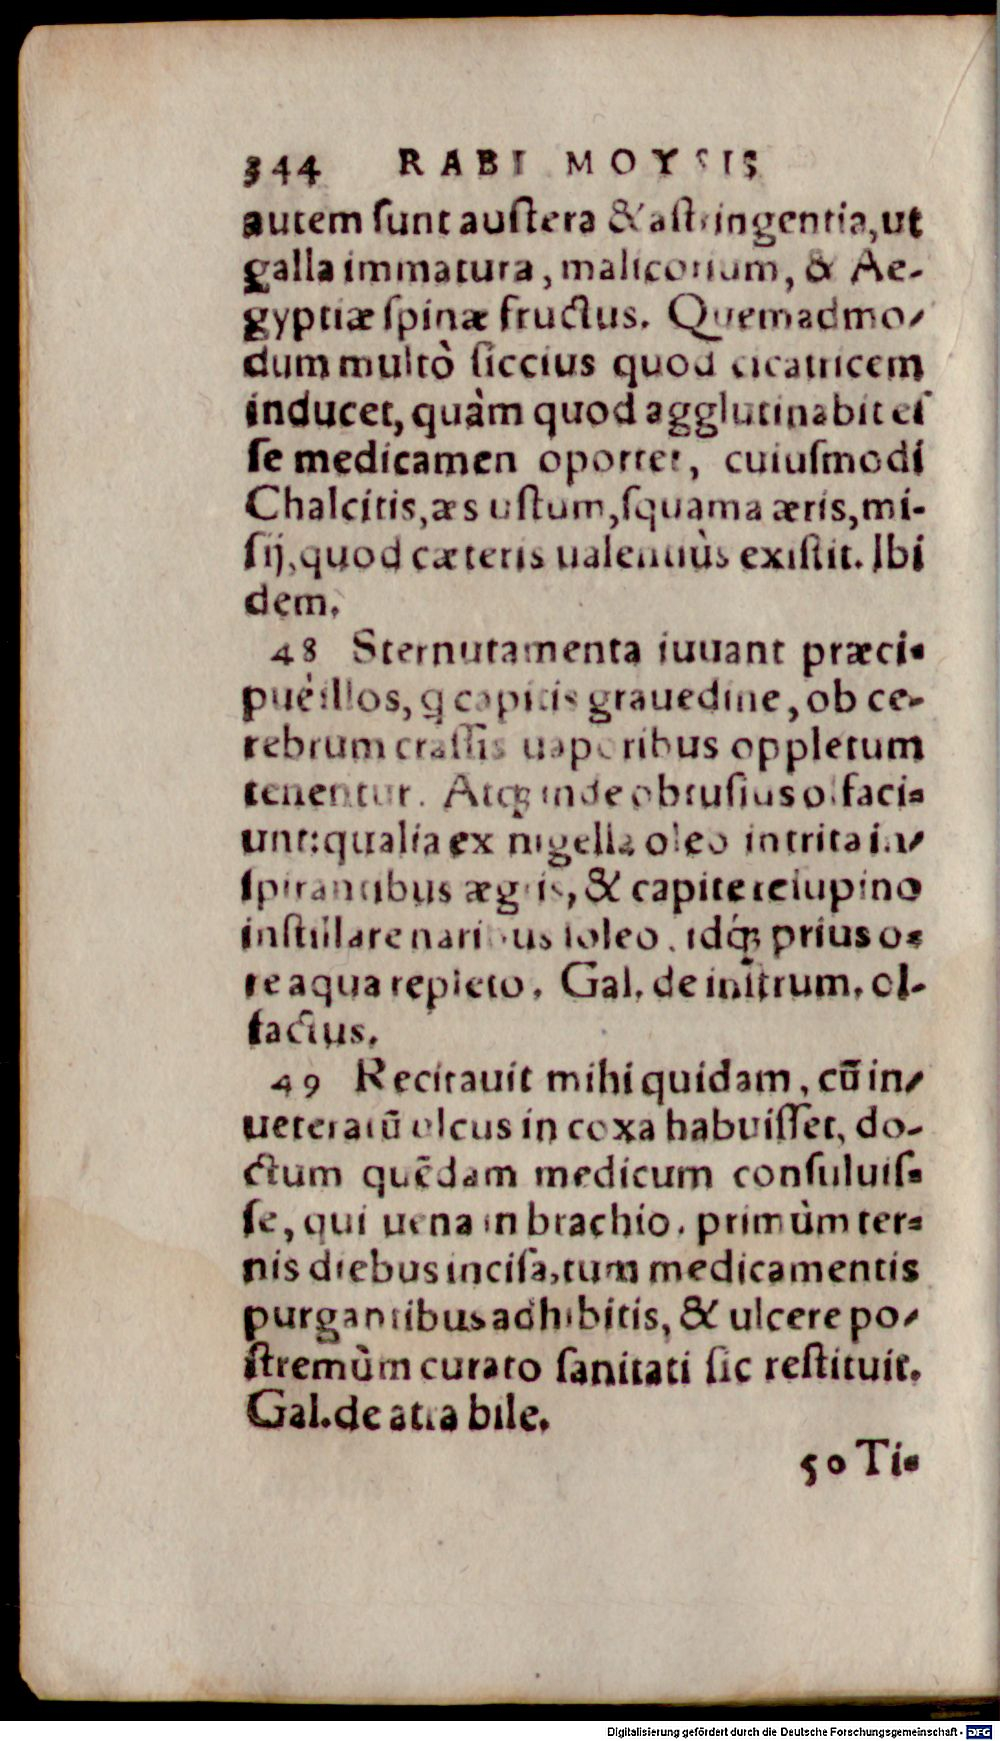 344 RABI MOYSIS
autem ſunt auſtera & aſtringentia, ut
galla immatura, malicorium, & Ae-
gyptiæ ſpinæ fructus. Quemadmo-
dum multò ſiccius quod cicatricem
inducet, quàm quod agglutinabit eſ
ſe medicamen oportet, cuiuſmodi
Chalcitis, æs uſtum, ſquama æris, mi-
ſij, quod cæteris ualentiùs exiſtit. Ibi
dem.
48 Sternutamenta iuuant præci-
pué illos, q capitis grauedine, ob ce-
rebrum craſſis uaporibus oppletum
tenentur. Atq; inde obtuſius olfaci-
unt: qualia ex nigella oleo intrita in-
ſpirantibus ægris, & capite reſupino
inſtillare naribus ioleo, idq́; prius o-
re aqua repleto. Gal. de inſtrum. ol-
factus.
49 Recitauit mihi quidam, cū in-
ueteratū ulcus in coxa habuiſſet, do-
ctum quēdam medicum conſuluiſ-
ſe, qui uena in brachio, primùm ter-
nis diebus inciſa, tum medicamentis
purgantibus adhibitis, & ulcere po-
ſtremùm curato ſanitati ſic reſtituit.
Gal. de atra bile.
50 Ti-
Digitalisierung gefördert durch die Deutsche Forschungsgemeinschaft - DFG